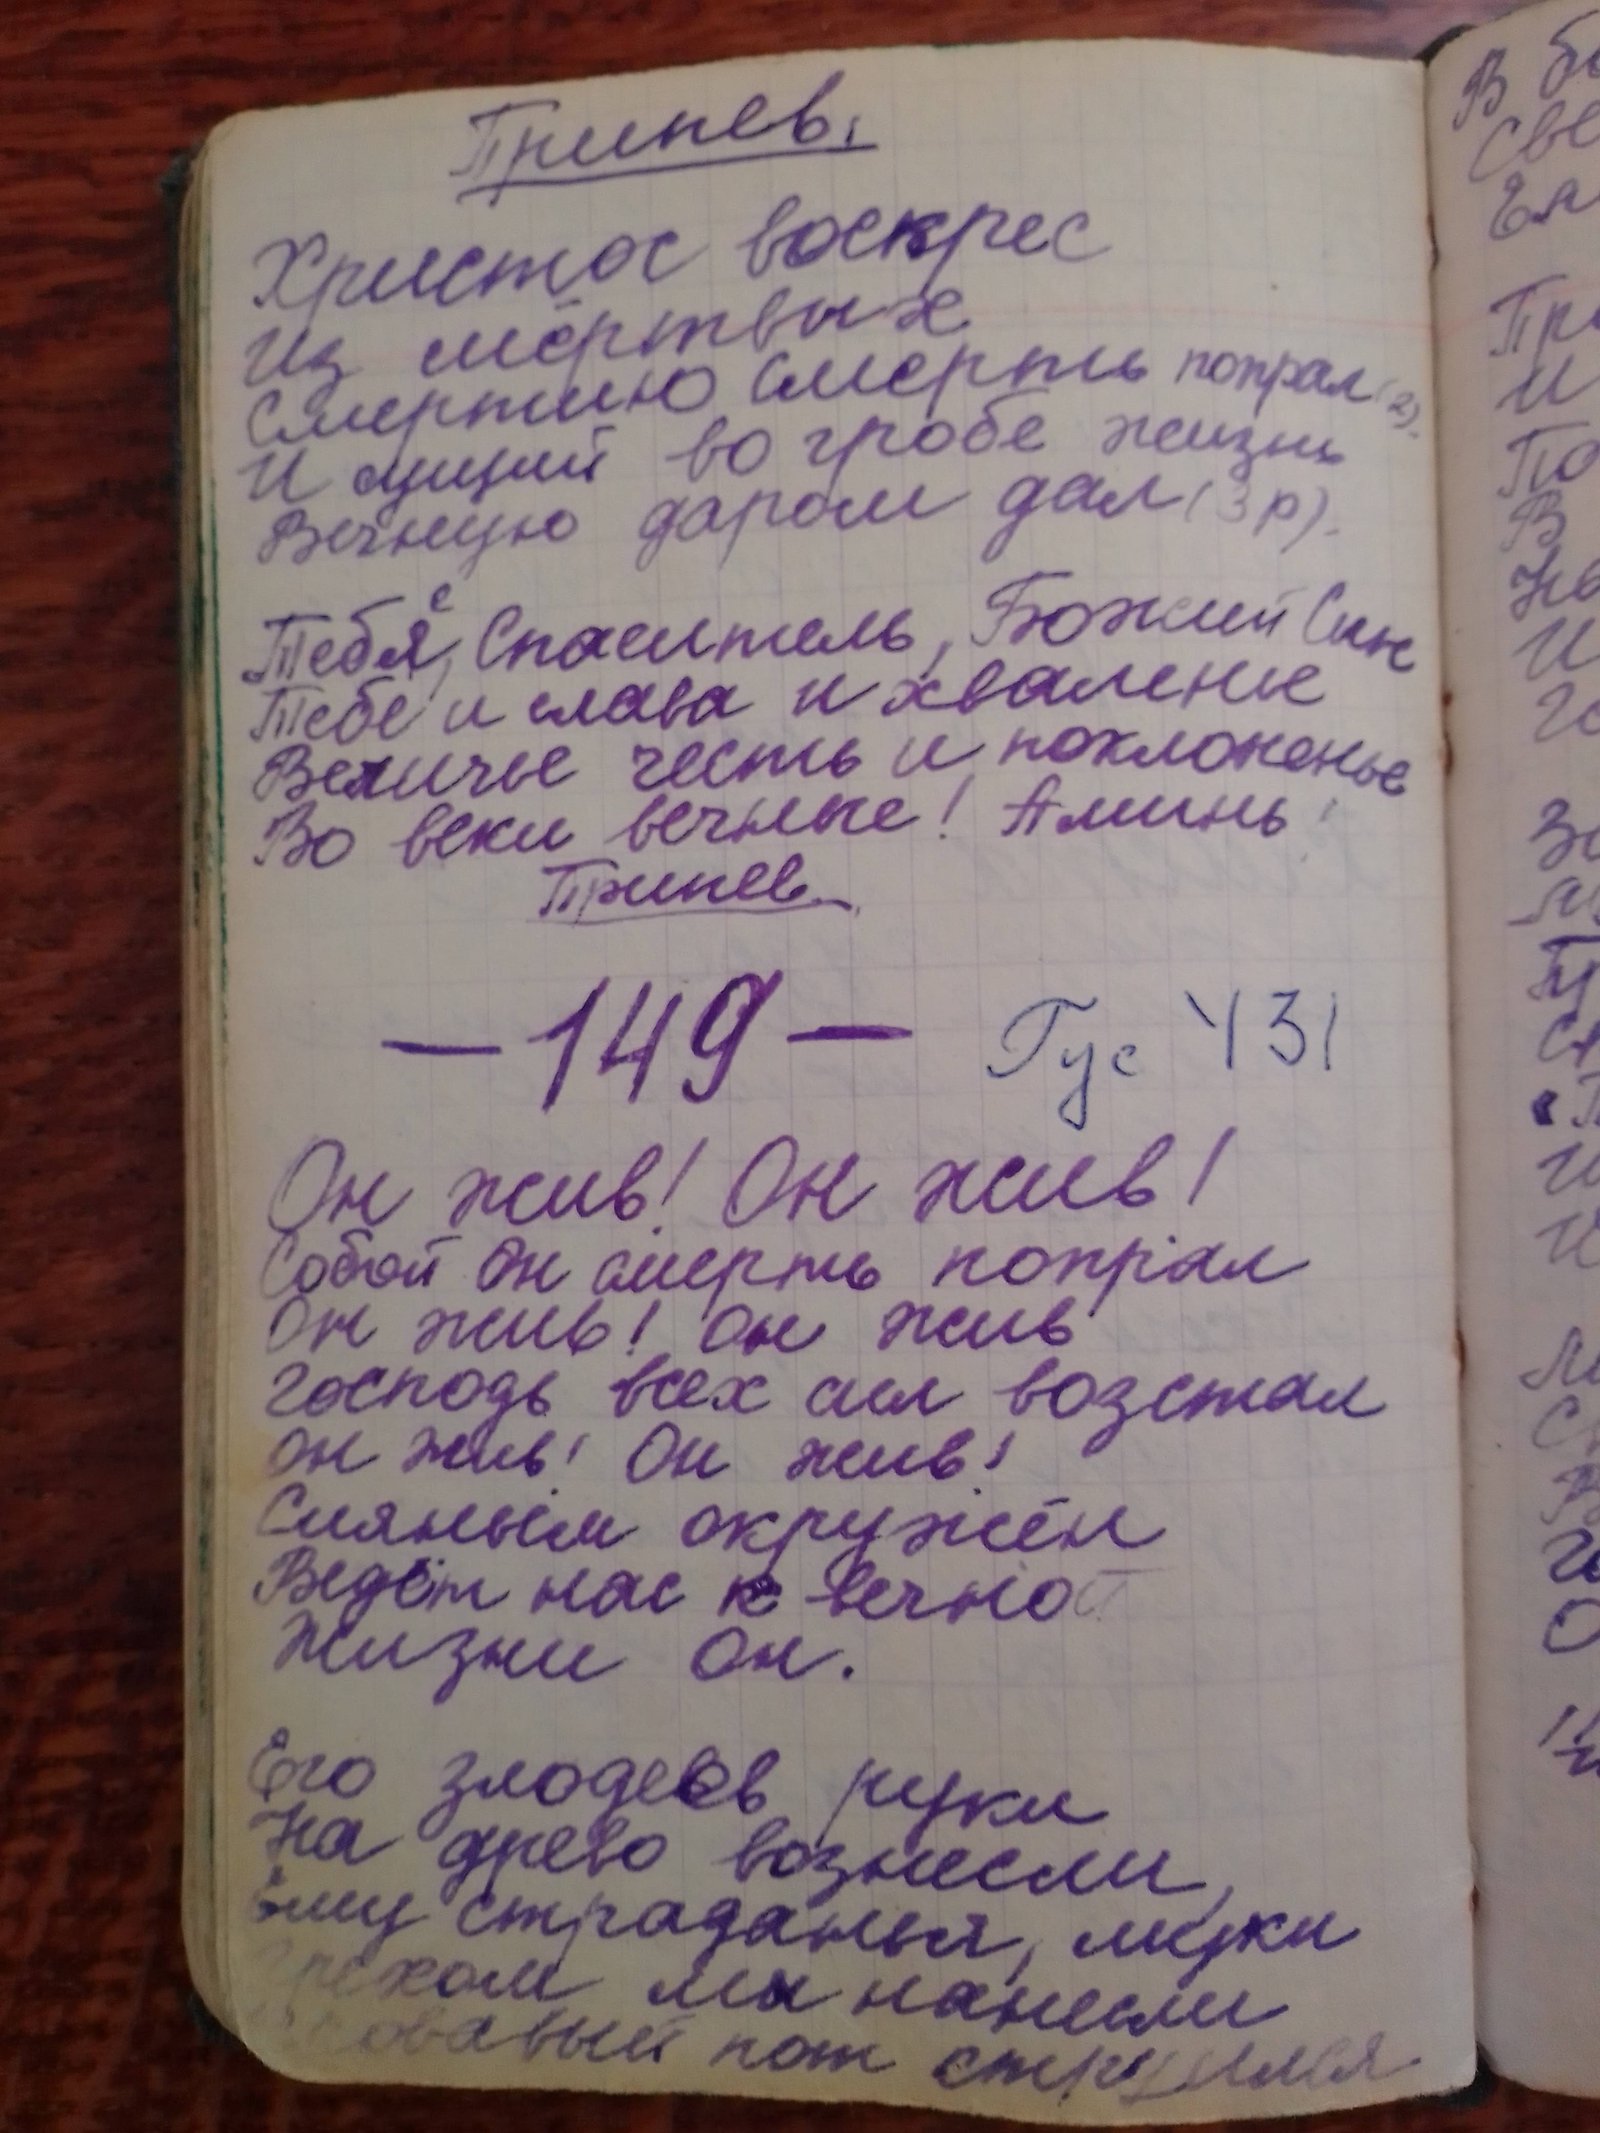 Припев.
Христос воскрес
Из мёртвых
Смертию смерть попрал (2).
И сущий во гробе жизнь
Вечную даром дал (3 р).
Тебя, Спаситель, Божий Сын
Тебе и слава и хваленье
Величье честь и поклоненье
Во веки вечные! Аминь!
Припев.
— 149 — Гус 431
Он жив! Он жив!
Собой Он смерть попрал
Он жив! Он жив
Господь всех сил возстал
Он жив! Он жив!
Сияньем окружён
Ведёт нас к вечной
Жизни Он.
Его злодеев руки
На древо вознесли,
Ему страданья, муки
Грехом мы нанесли
пот струился
В
Све
И
По
В
И